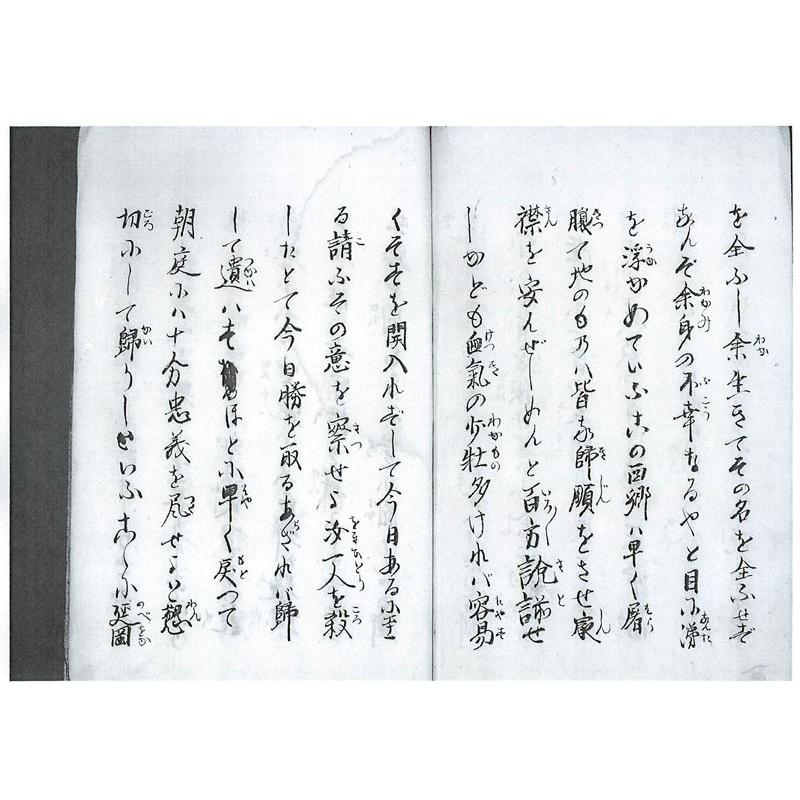 を全ふし余生きてその名を全ふせざ
るんぞ余身の不幸なるやと目に涕
を浮かめていふ此の西郷ハ早く屠
腹て地のもの八皆な歸順をさせ宸
襟を安んぜしめんと百方説諭せ
しかども血氣の少壮多けれバ容易
くそを開入れずして今日あるに至
る請ふその意を察せよ汝一人を殺
したとて今日勝を取るあらざれバ歸
して遣ハすほどに早く戻つて
朝庭にハ十分忠義を尽せよと懇
切にして歸りしといふこゝに延岡